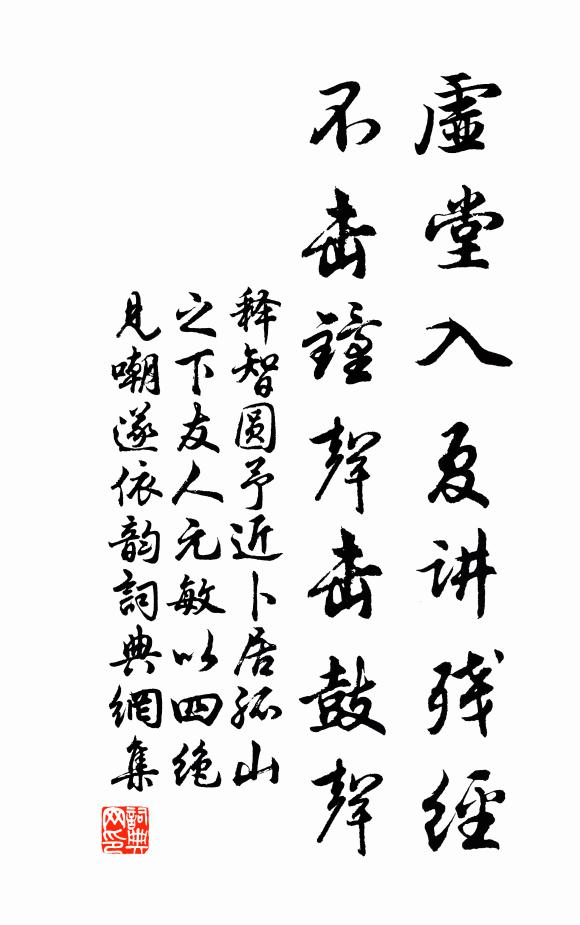 虚堂入夏讲残经
不击钟聲击鼓聲
释智圆予近卜居孤山
之下友人元敏以四绝
见嘲遂依韵詞典網集
詞典网印